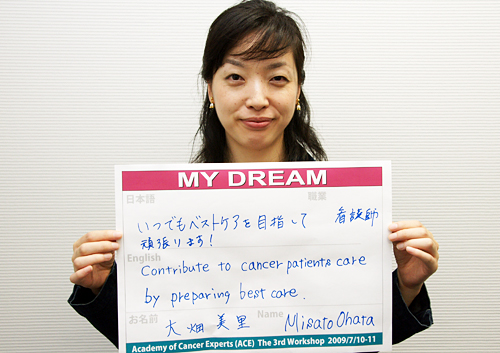 MY DREAM
日本語 職業
いつでもベストケアを目指して 看護師
頑張ります!
English
Contribute to cancer patients care
by preparing best care.
お名前 大畑 美里 Name Misato Ohata
Academy of Cancer Experts (ACE) The 3rd Workshop 2009/7/10-11